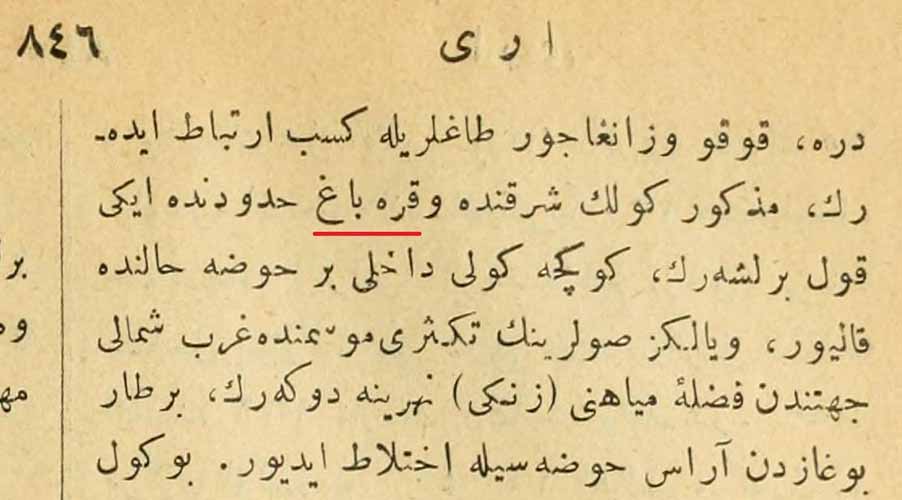 ٨٤٦
اری
دره، قوقو وزانغاجور طاغلریله كسب ارتباط ایده-
رك، مذكور كولك شرقنده وقره باغ حدودنده ایكی
قول برلشه‌رك، كوكچه كولی داخلی بر حوضه حالنده
قالیور، ویالكز صولرینك تكثری موسمنده غرب شمالی
جهتندن فضلهٔ میاهنی (زنكی) نهرینه دوكه‌رك، بر طار
بوغازدن آراس حوضه‌سیله اختلاط ایدیور. بو كول
بر
مه